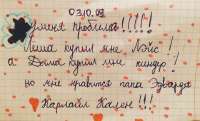 03.10.09
У меня проблема!!!!!
Леша купил мне Лэйс!
а Дима купил мне киндер!
но мне нравится папа Эдварда
Карлайл Кален!!!